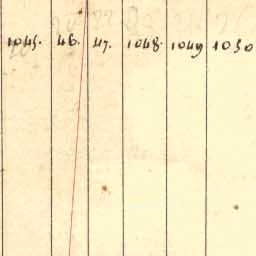 1045. 46. 47. 1048. 1049 1050